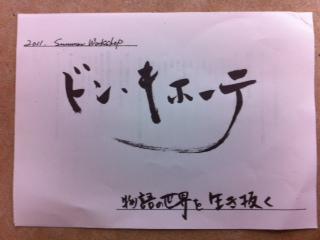 2011. Summer Workshop
ドン・キホーテ
物語の世界を生き抜く